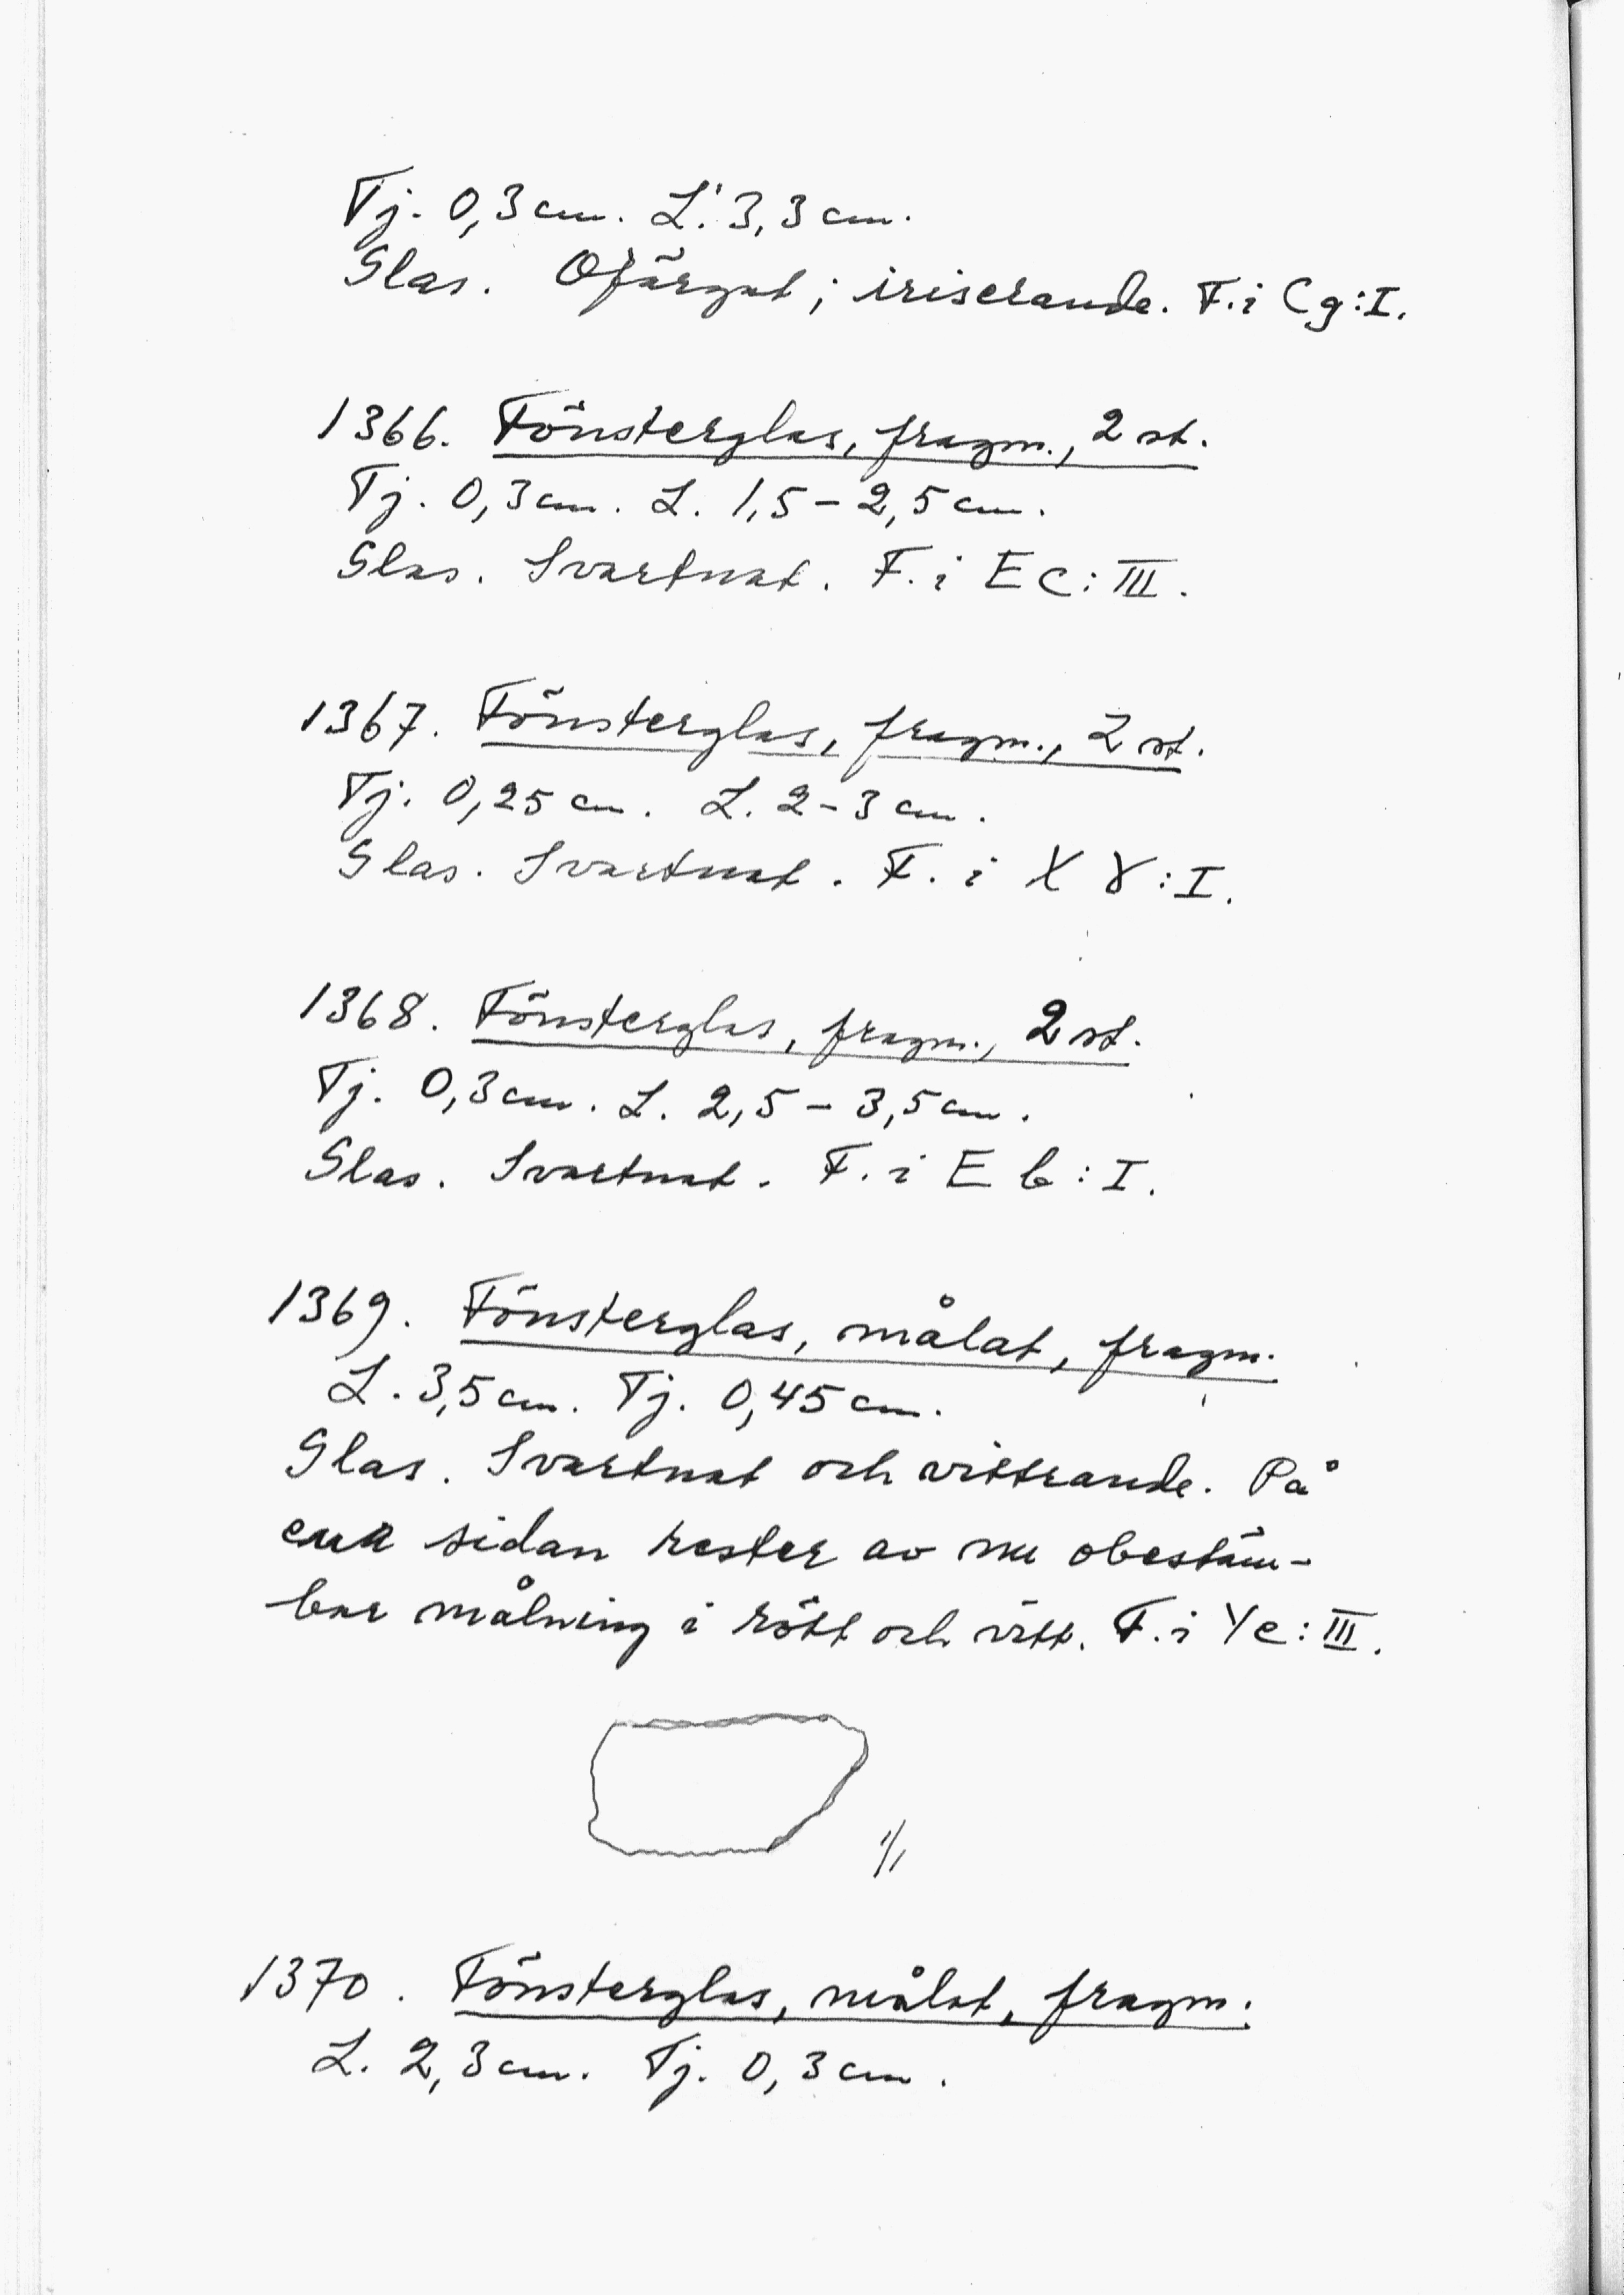 Tj. 0,3 cm. L. 3,3 cm.
Glas. Ofärgat; iriserande. F. i Cg:I.
1366. Fönsterglas, fragm., 2 st.
Tj. 0,3 cm. L. 1,5-2,5 cm.
Glas. Svartnat. F. i E c:III.
1367. Fönsterglas, fragm., 2 st.
Tj. 0,25 cm. L. 2-3 cm.
Glas. Svartnat. F. i X γ:I.
1368. Fönsterglas, fragm., 2 st.
Tj. 0,3 cm. L. 2,5-3,5 cm.
Glas. Svartnat. F. i E b:I.
1369. Fönsterglas, målat, fragm.
L. 3,5 cm. Tj. 0,45 cm.
Glas. Svartnat och vittrande. På
ena sidan rester av nu obestäm-
bar målning i rött och vitt. F. i Ye:III.
1/1
1370. Fönsterglas, målat, fragm.
L. 2,3 cm. Tj. 0,3 cm.